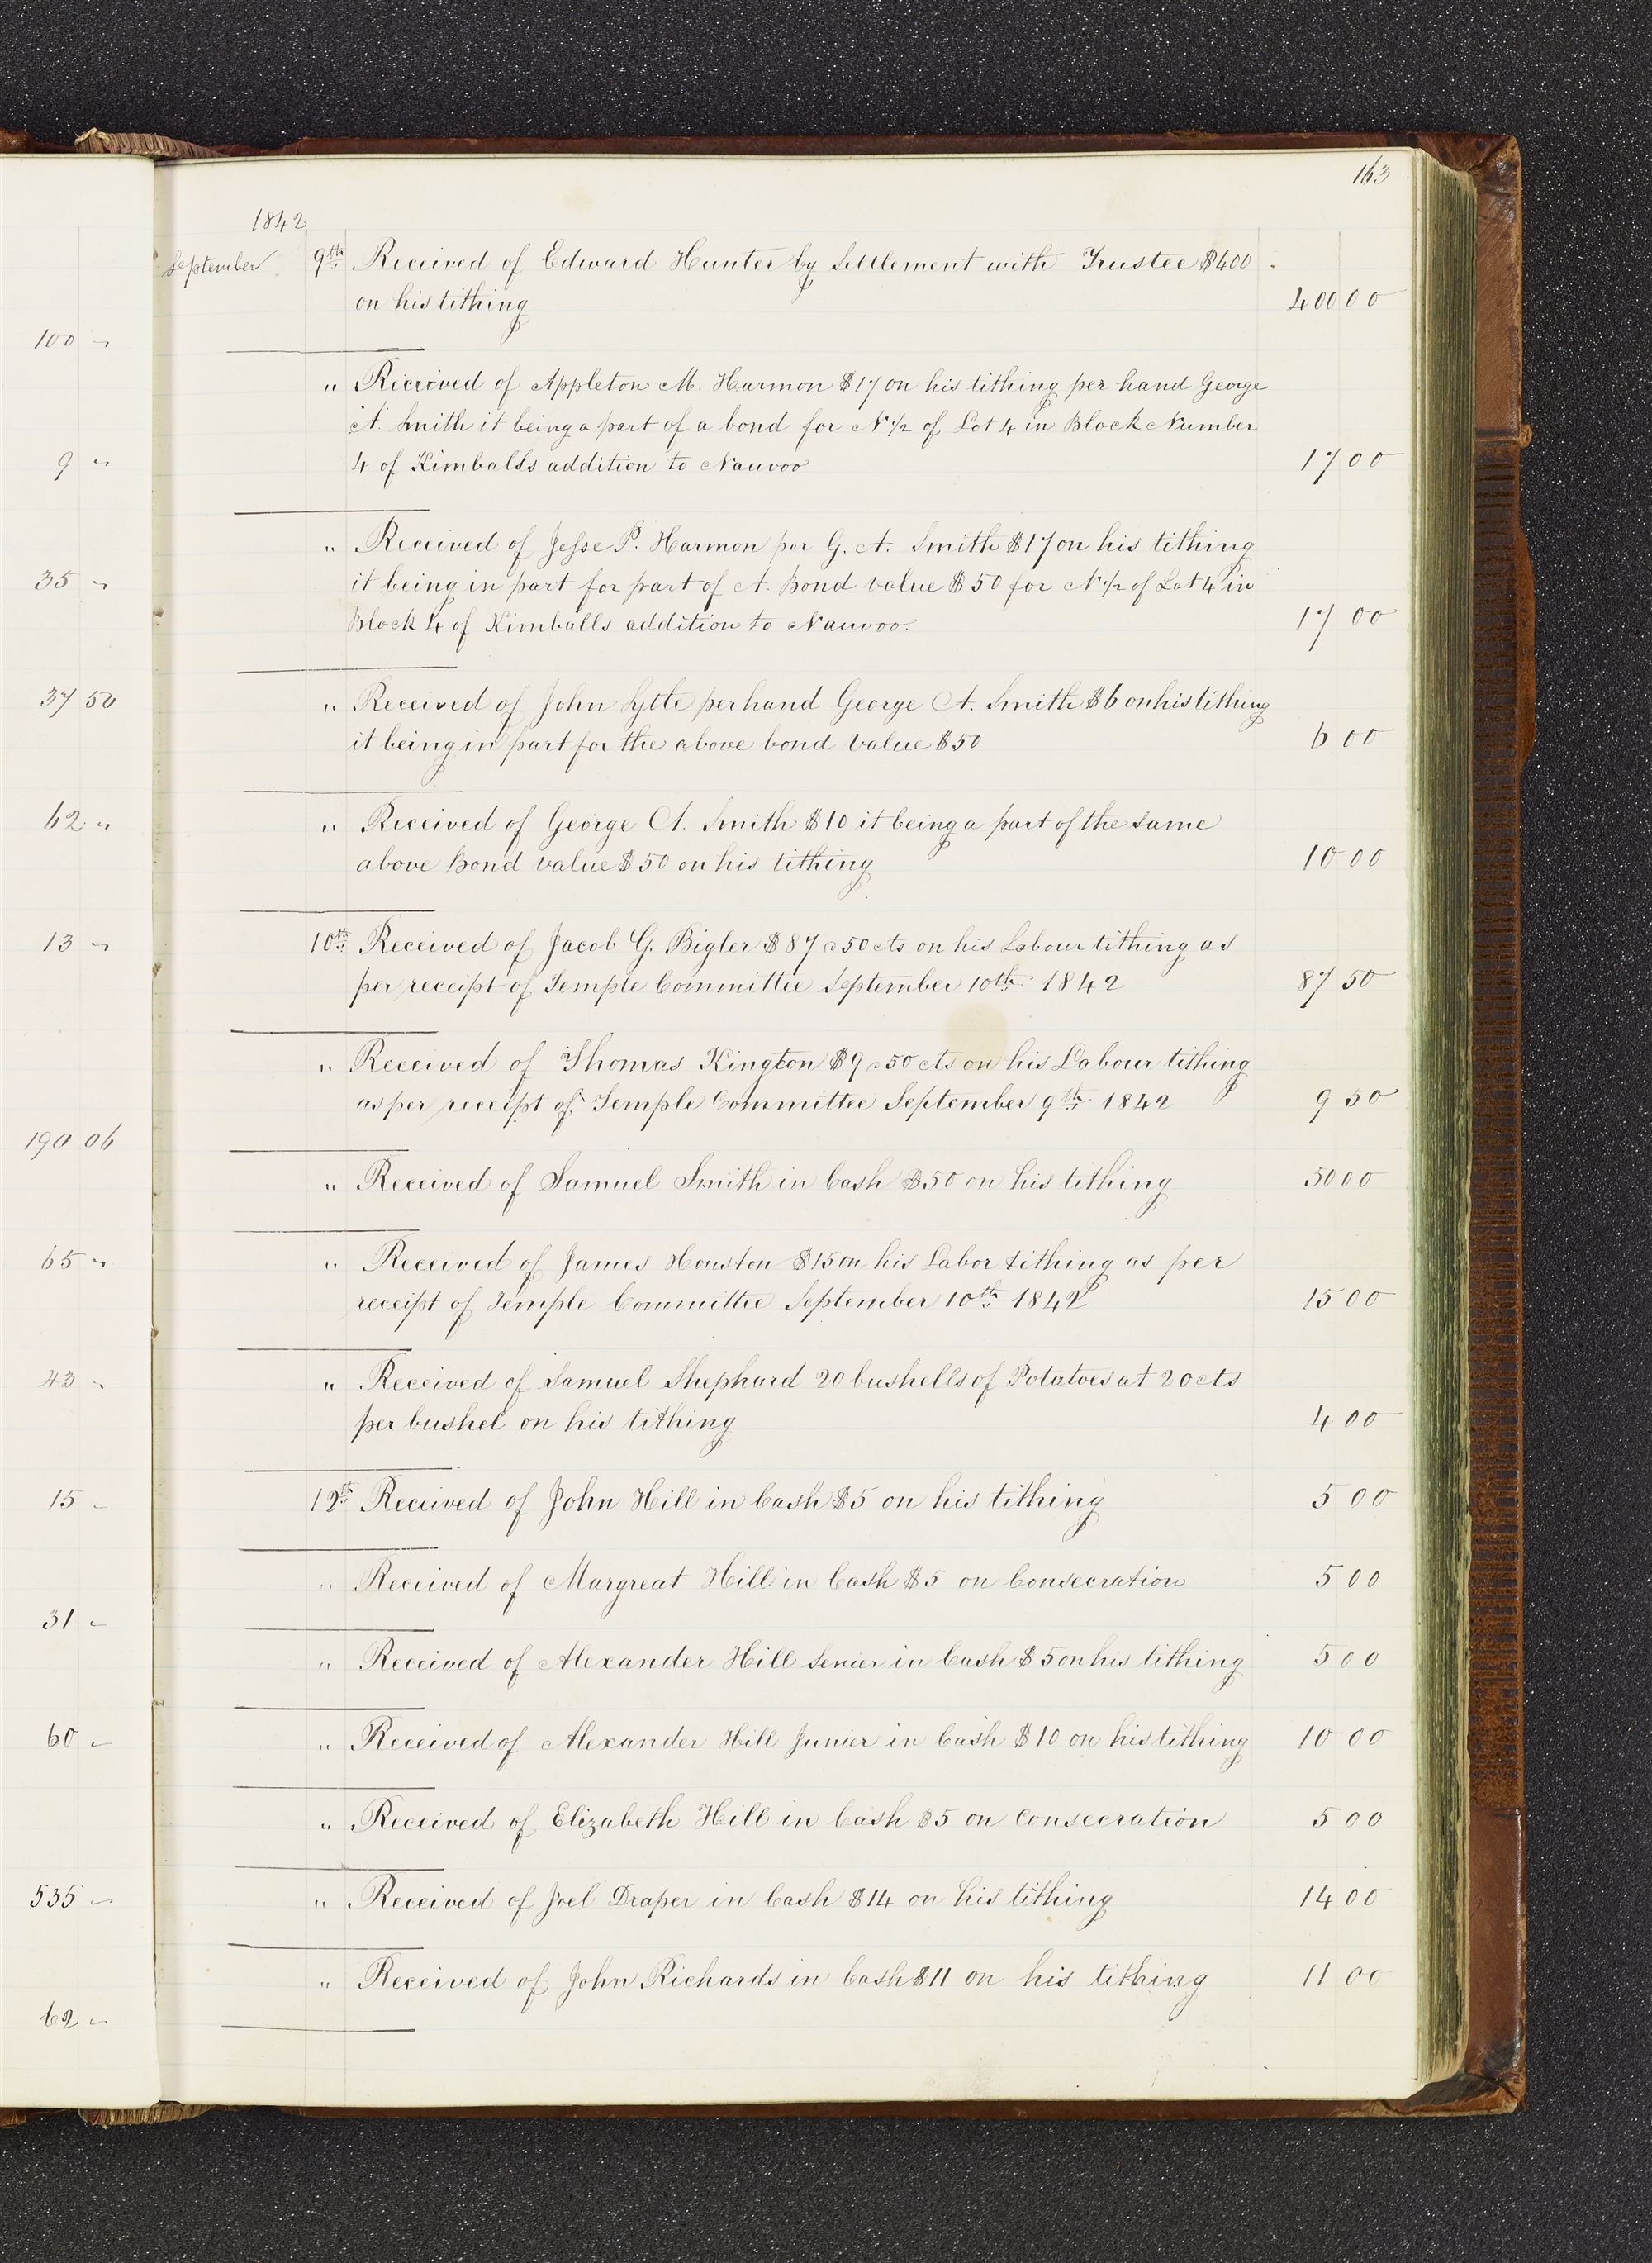 163
1842
September 9th Received of Edward Hunter by Settlement with Trustee $400
on his tithing 400 00
100 "
" Received of Appleton M. Harmon $17 on his tithing per hand George
A. Smith it being a part of a bond for N 1/2 of Lot 4 in Block Number
4 of Kimballs addition to Nauvoo 17 00
9 "
" Received of Jesse P. Harmon per G. A. Smith $17 on his tithing
it being in part for part of A. Bond value $50 for N 1/2 of Lot 4 in
Block 4 of Kimballs addition to Nauvoo. 17 00
35 "
" Received of John Lytle per hand George A. Smith $6 on his tithing
it being in part for the above bond value $50 6 00
37 50
" Received of George A. Smith $10 it being a part of the same
above Bond value $50 on his tithing 10 00
62 "
10th Received of Jacob G. Bigler $87 " 50 cts on his Labour tithing as
per receipt of Temple Committee September 10th 1842 87 50
13 "
" Received of Thomas Kington $9 " 50 cts on his Labour tithing
as per receipt of Temple Committee September 9th 1842 9 50
190 06
" Received of Samuel Smith in Cash $50 on his tithing 50 00
" Received of James Houston $15 on his Labor tithing as per
receipt of Temple Committee September 10th 1842 15 00
65 "
" Received of Samuel Shephard 20 bushells of Potatoes at 20 cts
per bushel on his tithing 4 00
43 "
12th Received of John Hill in Cash $5 on his tithing 5 00
15 "
" Received of Margreat Hill in Cash $5 on Consecration 5 00
31 "
" Received of Alexander Hill Senier in Cash $5 on his tithing 5 00
" Received of Alexander Hill Junier in Cash $10 on his tithing 10 00
60 "
" Received of Elizabeth Hill in Cash $5 on Consecration 5 00
" Received of Joel Draper in Cash $14 on his tithing 14 00
535 "
" Received of John Richards in Cash $11 on his tithing 11 00
62 "